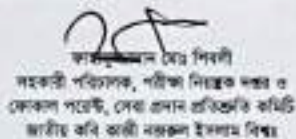 মোঃ শিবলী
সহকারী পরিচালক, পরীক্ষা নিয়ন্ত্রক দপ্তর ও
ফোকাল পয়েন্ট, সেবা প্রদান প্রতিশ্রুতি কমিটি
জাতীয় কবি কাজী নজরুল ইসলাম বিশ্ব